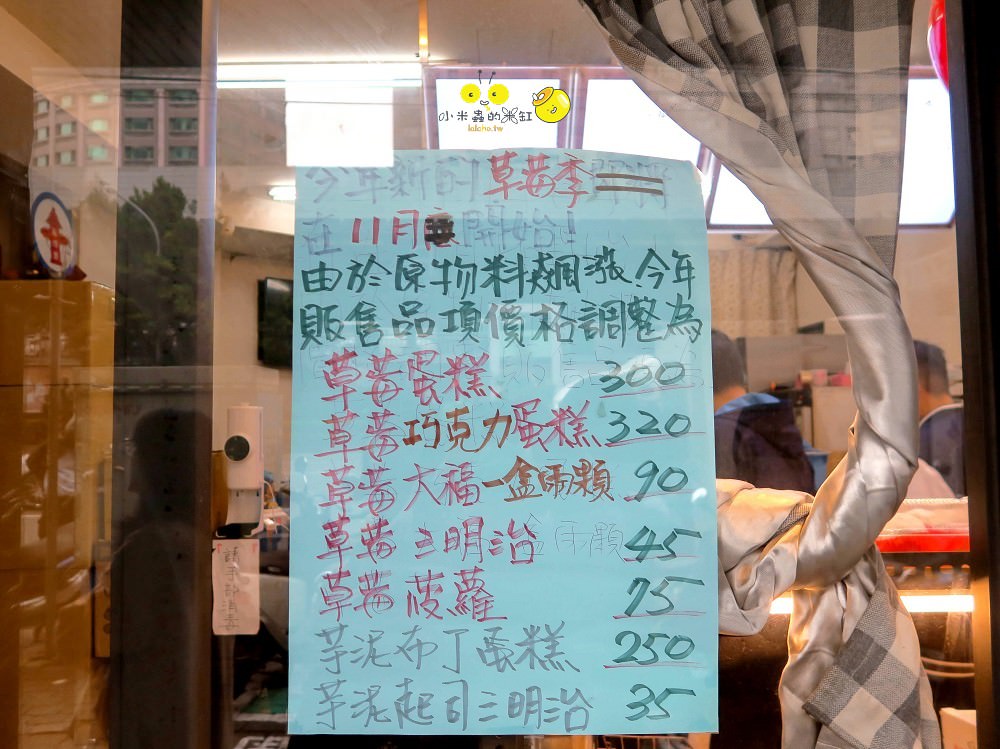 小米蟲的米缸
lalaho.tw
今年新的草莓季
在11月開始!
由於原物料飆漲今年
販售品項價格調整為
草莓蛋糕 300
草莓巧克力蛋糕 320
草莓大福一盒兩顆 90
草莓三明治 45
草莓菠蘿 75
芋泥布丁蛋糕 250
芋泥起司三明治 35
請手部消毒